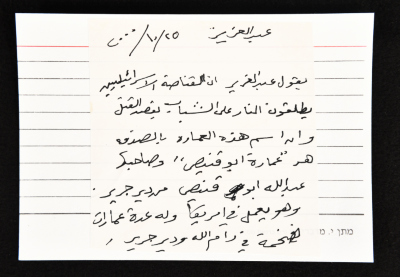 عبد العزيز ٢٥/١٠/٢٠٠٠
يقول عبد العزيز ان القناصة الاسرائيليين
يطلقون النار على الشباب بقصد القتل
وان اسم هذه العماره بالصدف
هو "عمارة ابو قنيص" وصاحبها
عبد الله ابو قنيص من دير جرير.
وهو يعمل في امريكا وله عدة عمارات
ضخمة في رام الله ودير جرير
מתן י. מ